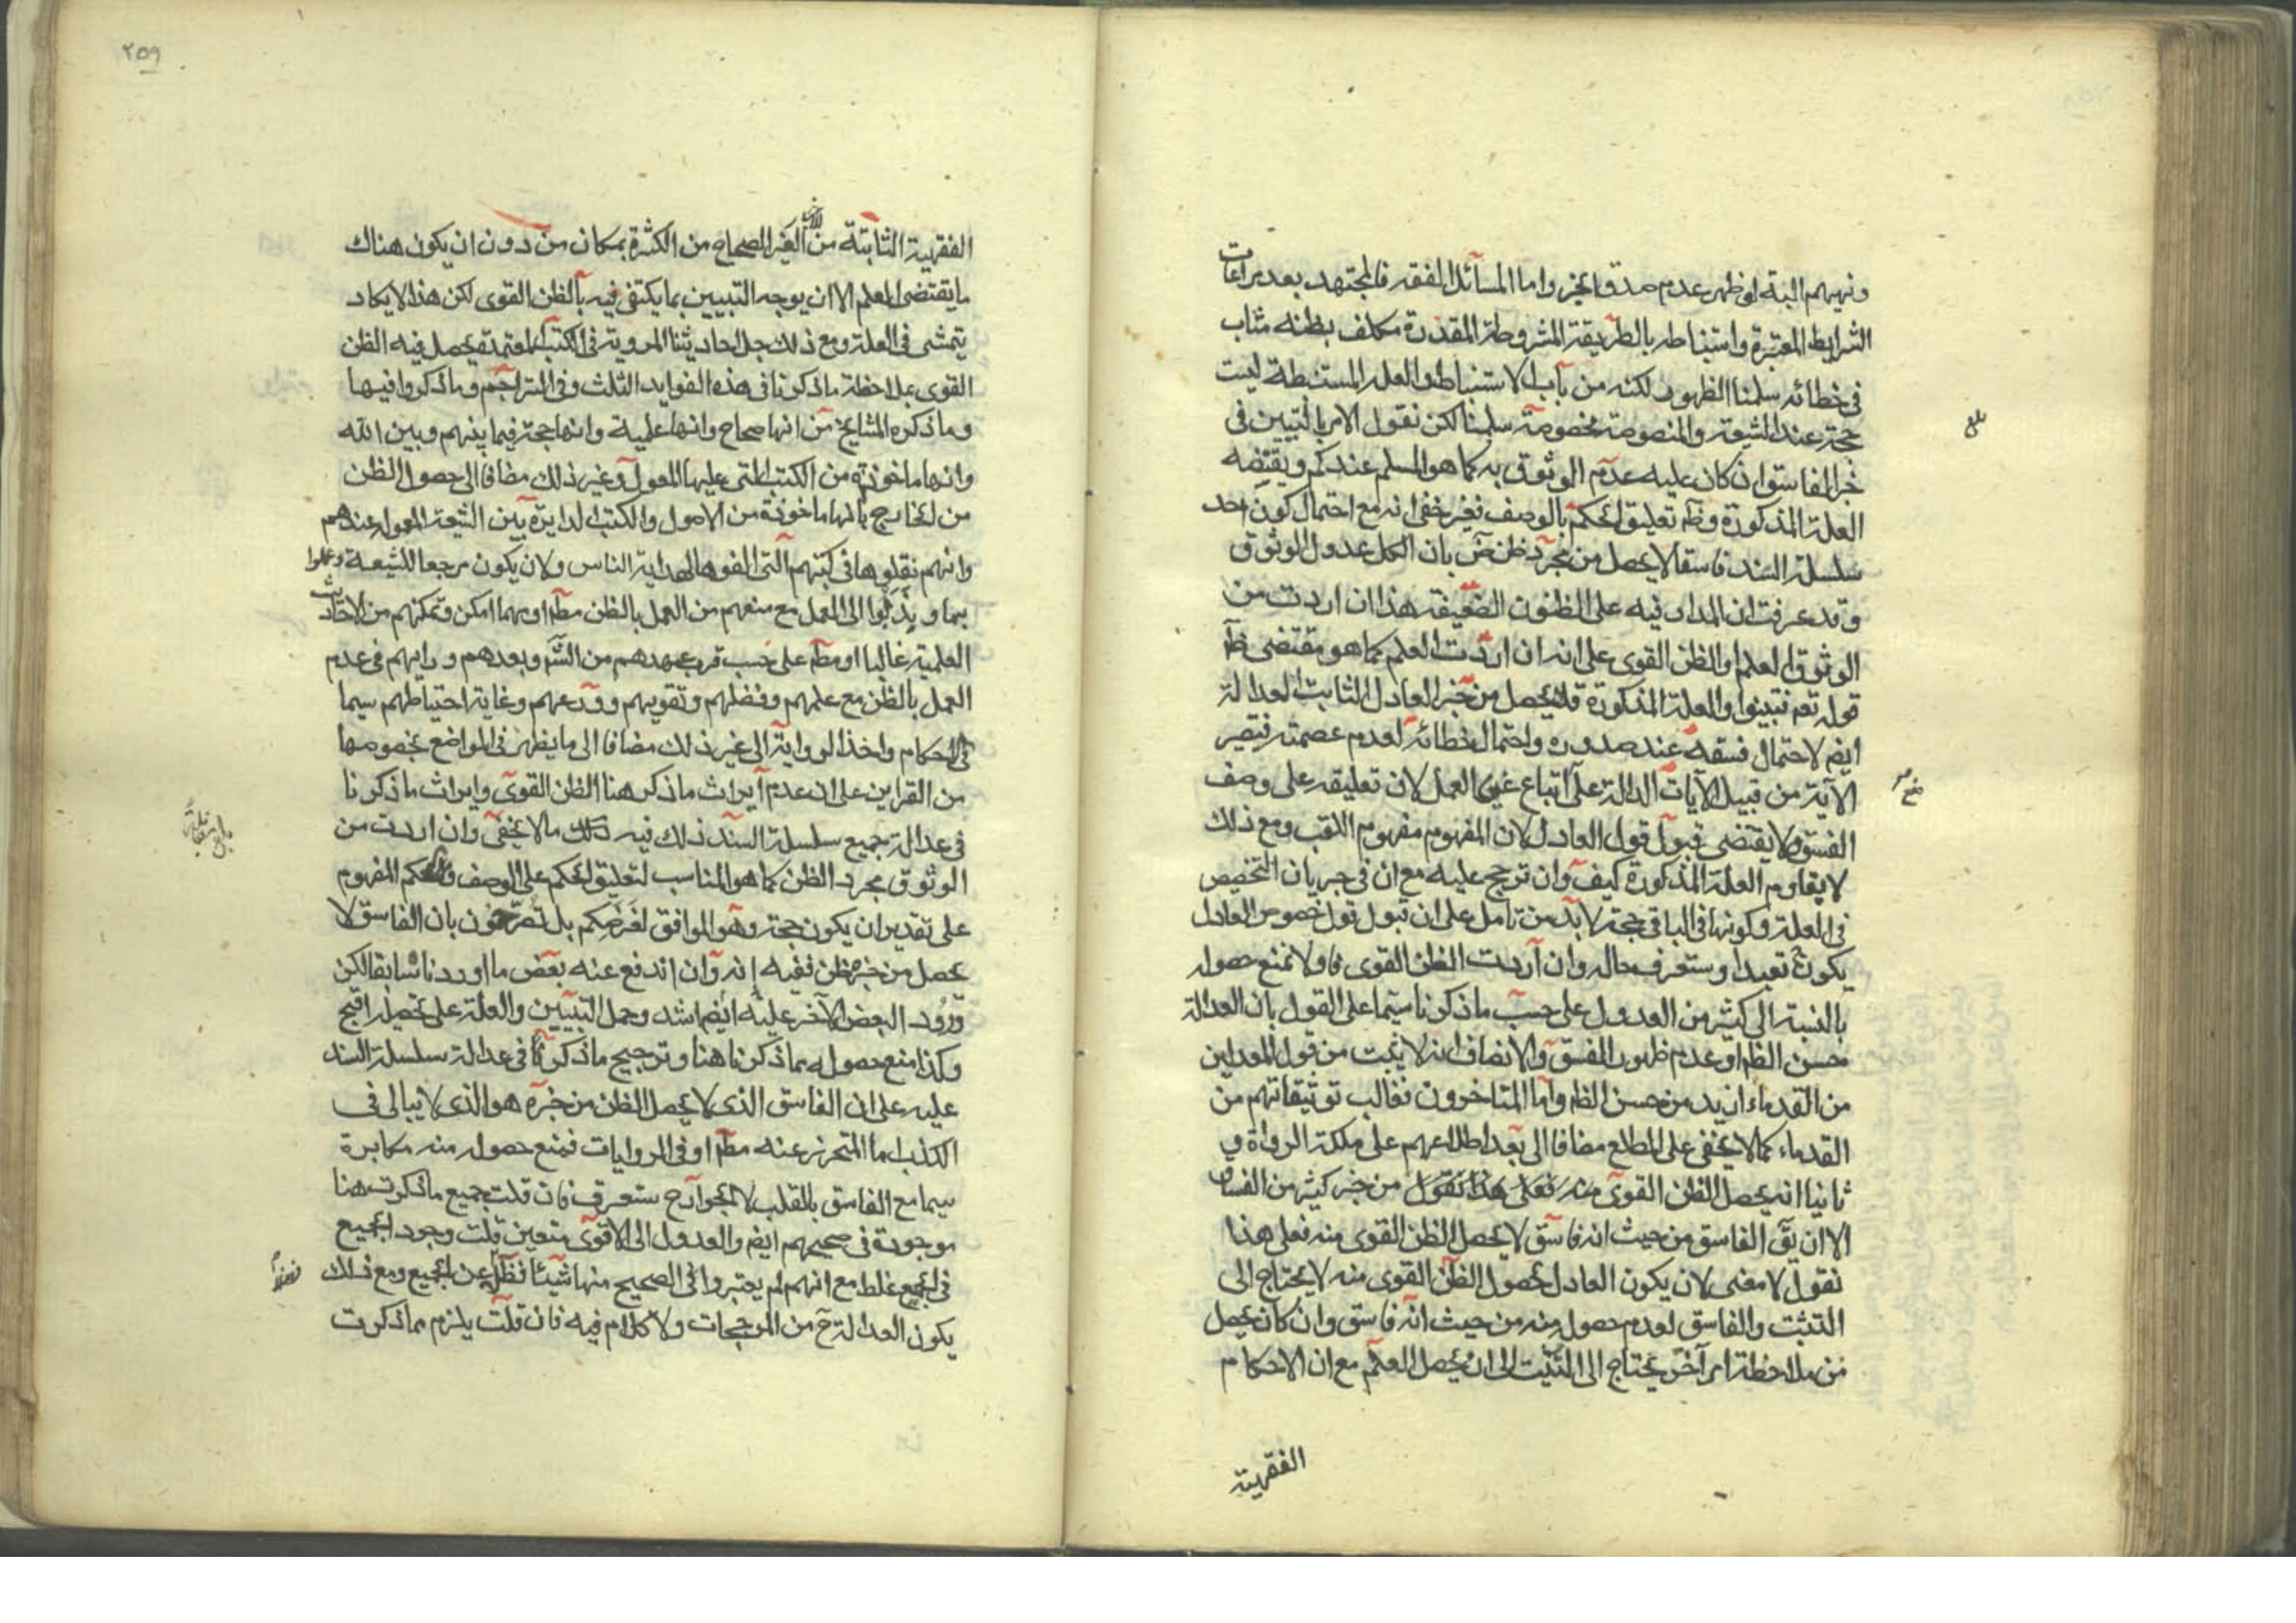 ونهيهم البتة او ظهر عدم صدق الخبر واما المسائل الفقه فالمجتهد بعد مراعات
الشرايط المعتبرة واستنباطه بالطريقة المشروطة المقدرة مكلف بظنه مثاب
فى خطائه سلمنا الظهور لكنه من باب الاستنباط والعلة المستنبطة ليست
حجة عند الشيعة والمنصوصة مخصوصة سلمنا لكن نقول الامر بالتبيين فى
خبر الفاسق ان كان عليه عدم الوثوق به كما هو المسلم عندكم ويقتضيه
العلة المذكورة وظ تعليق الحكم بالوصف فغير خفى انه مع احتمال كون احد
سلسلة السند فاسقا لا يحصل من مجرد ظن ض بان الكل عدول الوثوق
وقد عرفت ان المدار فيه على الظنون الضعيفة هذا ان اردت من
الوثوق العلم او الظن القوى على انه ان اردت العلم كما هو مقتضى ظ
قوله تع فتبينوا والعلة المذكورة فلا يحصل من خبر العادل الثابت العدالة
ايض لاحتمال فسقه عند صدوره واحتمال خطائه لعدم عصمته فتصير
الآية من قبيل الآيات الدالة على اتباع غير العمل لان تعليقه على وصف
الفسق لا يقتضى قبول قول العادل لان المفهوم مفهوم اللقب ومع ذلك
لا يقاوم العلة المذكورة كيف وان ترجح عليه مع ان فى جريان التخصيص
فى العلة وكونها فى الباقى حجة لا بد من تامل على ان قبول قول خصوص العادل
يكون تعبدا وستعرف حاله وان اردت الظن القوى فاولا نمنع حصوله
بالنسبة الى كثير من العدول على حسب ما ذكرنا سيما على القول بان العدالة
حسن الظ او عدم ظهور الفسق والانصاف انه لا يثبت من قول المعدلين
من القدماء ازيد من حسن الظ واما المتاخرون فغالب توثيقاتهم من
القدماء كما لا يخفى على المطلع مضافا الى بعد اطلاعهم على ملكة الرواة و
ثانيا انه يحصل الظن القوى منه فعلى هذا نقول من خبر كثير من الفساق
الا ان يق الفاسق من حيث انه فاسق لا يحصل الظن القوى منه فعلى هذا
نقول لا معنى لان يكون العادل لحصول الظن القوى منه لا يحتاج الى
التثبت والفاسق لعدم حصوله منه من حيث انه فاسق وان كان يحصل
من ملاحظة امر آخر يحتاج الى التثبت الى ان يحصل العلم مع ان الاحكام
الفقهية
بلغ
٢٥٩
الفقهية الثابتة من الاخبار الغير الصحاح من الكثرة بمكان من دون ان يكون هناك
ما يقتضى العلم الا ان يوجه التبيين بما يكتفى فيه بالظن القوى لكن هذا لا يكاد
يتمشى فى العلة ومع ذلك جل احاديثنا المروية فى الكتب المعتمدة يحصل فيه الظن
القوى بملاحظة ما ذكرنا فى هذه الفوايد الثلث وفى التراجم وما ذكروا فيها
وما ذكره المشايخ من انها صحاح وانها علمية وانها حجة فيما بينهم وبين الله
وانها ماخوذة من الكتب التى عليها المعول وغير ذلك مضافا الى حصول الظن
من الخارج بانها ماخوذة من الاصول والكتب الدايرة بين الشيعة المعولة عندهم
وانهم نقلوها فى كتبهم التى الفوها لهداية الناس ولان يكون مرجعا للشيعة وعملوا
بها وندبوا الى العمل مع منعهم من العمل بالظن مط او مهما امكن وتمكنهم من الاحاديث
العلمية غالبا او مط على حسب قرب عهدهم من الش وبعدهم ورايهم فى عدم
العمل بالظن مع علمهم وفضلهم وتقويهم وورعهم وغاية احتياطهم سيما
فى الاحكام واخذ الرواية الى غير ذلك مضافا الى ما يظهر فى المواضع بخصوصها
من القراين على ان عدم ايراث ما ذكر هنا الظن القوى وايراث ما ذكرنا
فى عدالة جميع سلسلة السند ذلك فيه مالا يخفى وان اردت من
الوثوق مجرد الظن كما هو المناسب لتعليق الحكم على الوصف وحكم المفهوم
على تقدير ان يكون حجة وهو الموافق لغرضكم بل تصرحون بان الفاسق لا
يحصل من خبره ظن ففيه انه وان اندفع عنه بعض ما اوردنا سابقا لكن
ورود البعض الآخر عليه ايض اشد وحمل التبيين والعلة على تحصيله اقبح
وكذا منع حصوله مما ذكرنا هنا وترجيح ما ذكرنا فى عدالة سلسلة السند
عليه على ان الفاسق الذى لا يحصل الظن من خبره هو الذى لا يبالى فى
الكذب اما المتحرز عنه مط او فى الروايات فمنع حصوله منه مكابرة
سيما مع الفاسق بالقلب لا الجوارح ستعرف فان قلت جميع ما ذكرت هنا
موجودة فى صحيحهم ايض والعدول الى الاقوى متعين قلت وجود الجميع
فى الجميع غلط مع انهم لم يعتبروا فى الصحيح منها شيئا فضلا عن الجميع ومع ذلك
يكون العدالة ح من المرجحات ولا كلام فيه فان قلت يلزم مما ذكرت